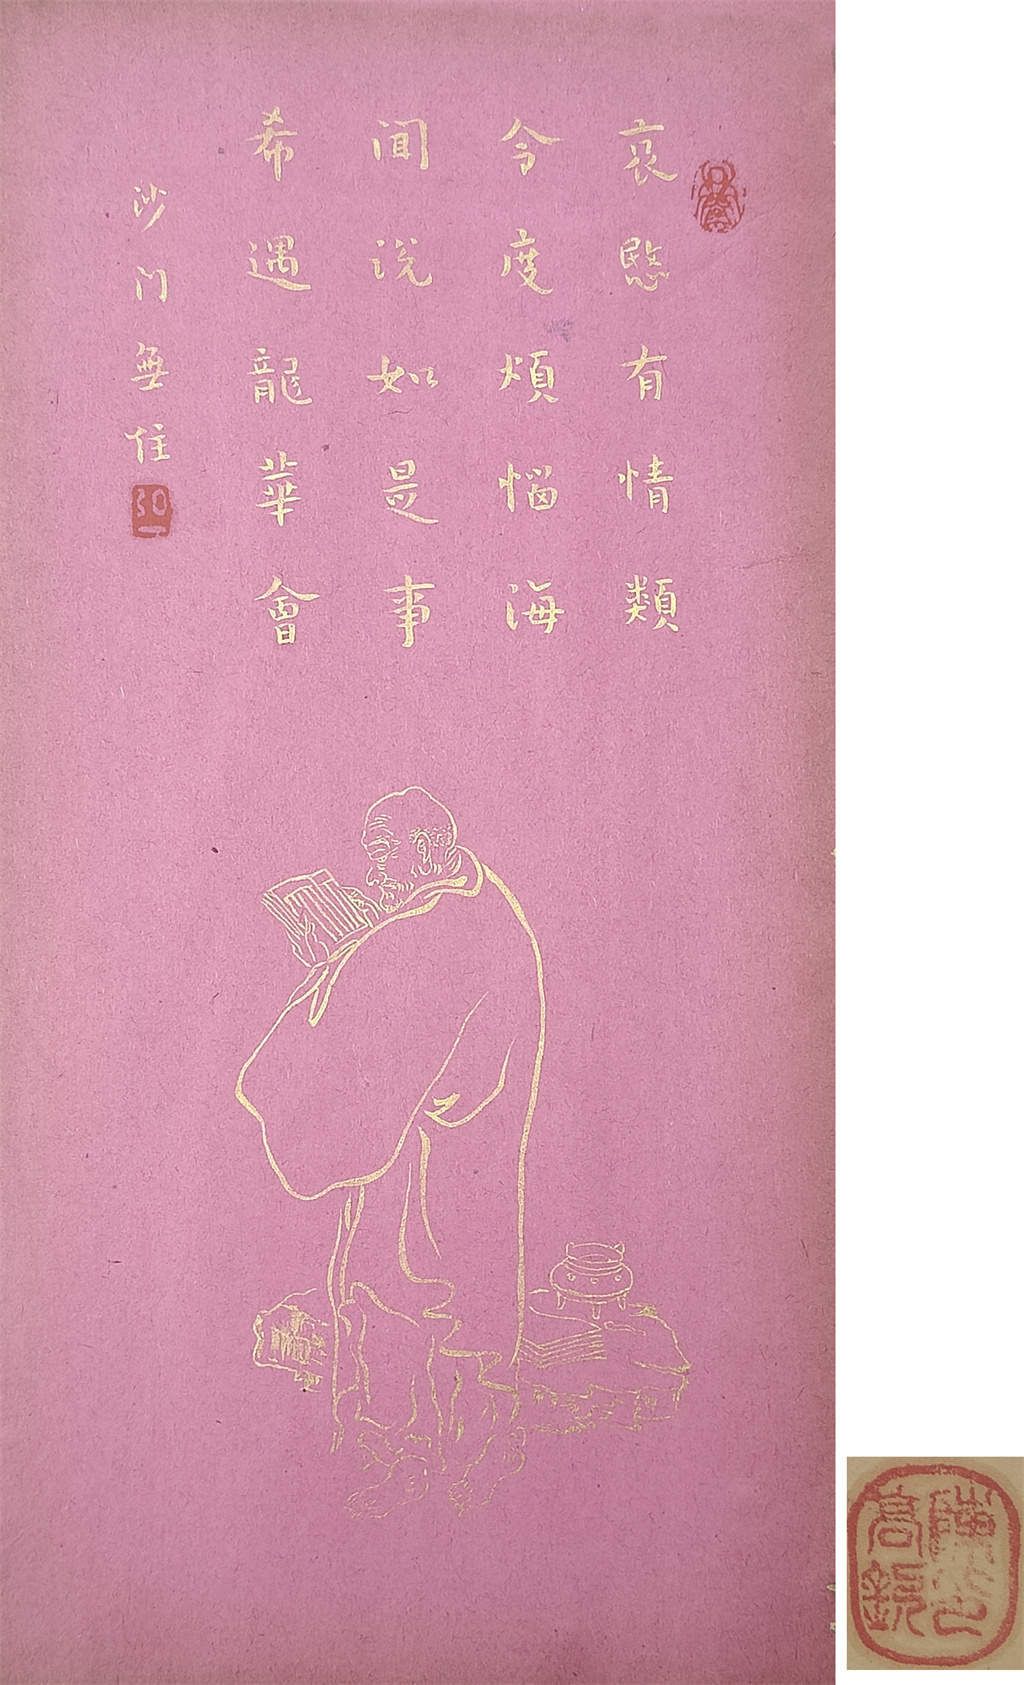 哀愍有情類
令度煩惱海
聞說如是事
希遇龍華會
沙門無住
弘一